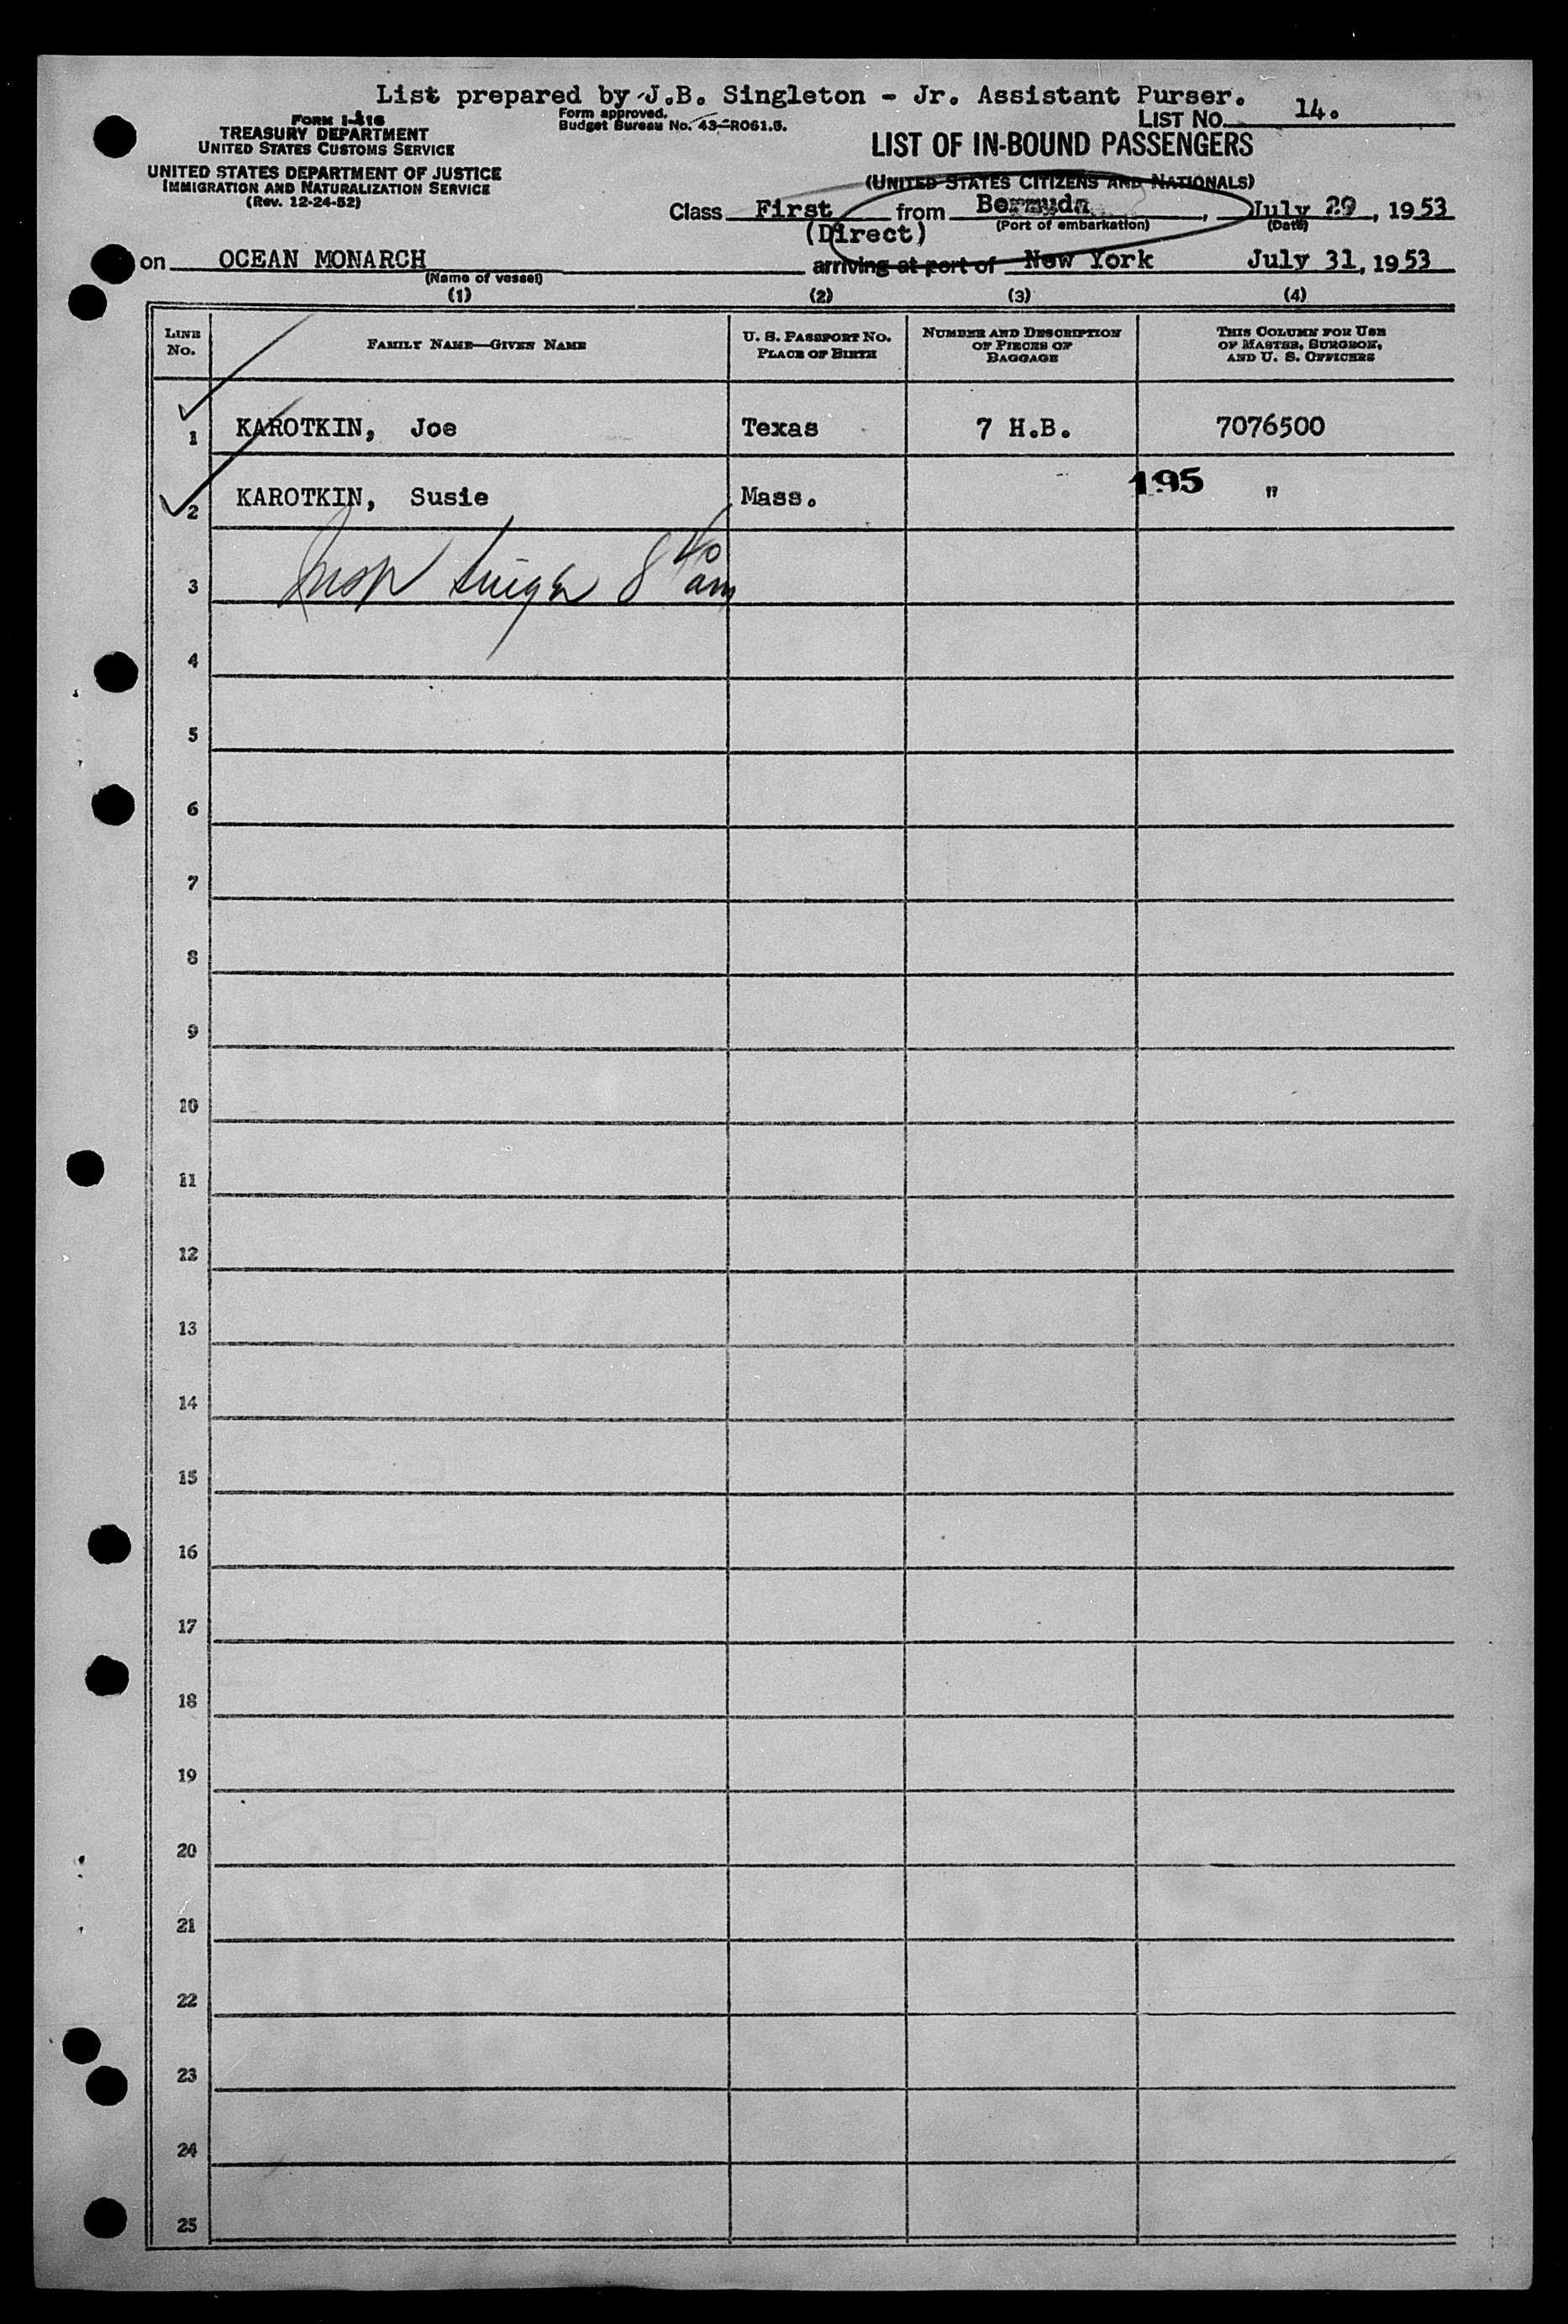 List prepared by J.B. Singleton - Jr. Assistant Purser.
FORM I-416
TREASURY DEPARTMENT
UNITED STATES CUSTOMS SERVICE
UNITED STATES DEPARTMENT OF JUSTICE
IMMIGRATION AND NATURALIZATION SERVICE
(Rev. 12-24-52)
Form approved.
Budget Bureau No. 43-R061.5.
LIST NO. 14.
LIST OF IN-BOUND PASSENGERS
(UNITED STATES CITIZENS AND NATIONALS)
Class First from Bermuda, July 29, 1953
(Direct) (Port of embarkation) (Date)
on OCEAN MONARCH arriving at port of New York July 31, 1953
(Name of vessel)
(1) (2) (3) (4)
LINE No. FAMILY NAME—GIVEN NAME U. S. PASSPORT NO. PLACE OF BIRTH NUMBER AND DESCRIPTION OF PIECES OF BAGGAGE THIS COLUMN FOR USE OF MASTER, SURGEON, AND U. S. OFFICERS
1 KAROTKIN, Joe Texas 7 H.B. 7076500
2 KAROTKIN, Susie Mass. 195 "
3 Insp 8 40 am
4
5
6
7
8
9
10
11
12
13
14
15
16
17
18
19
20
21
22
23
24
25